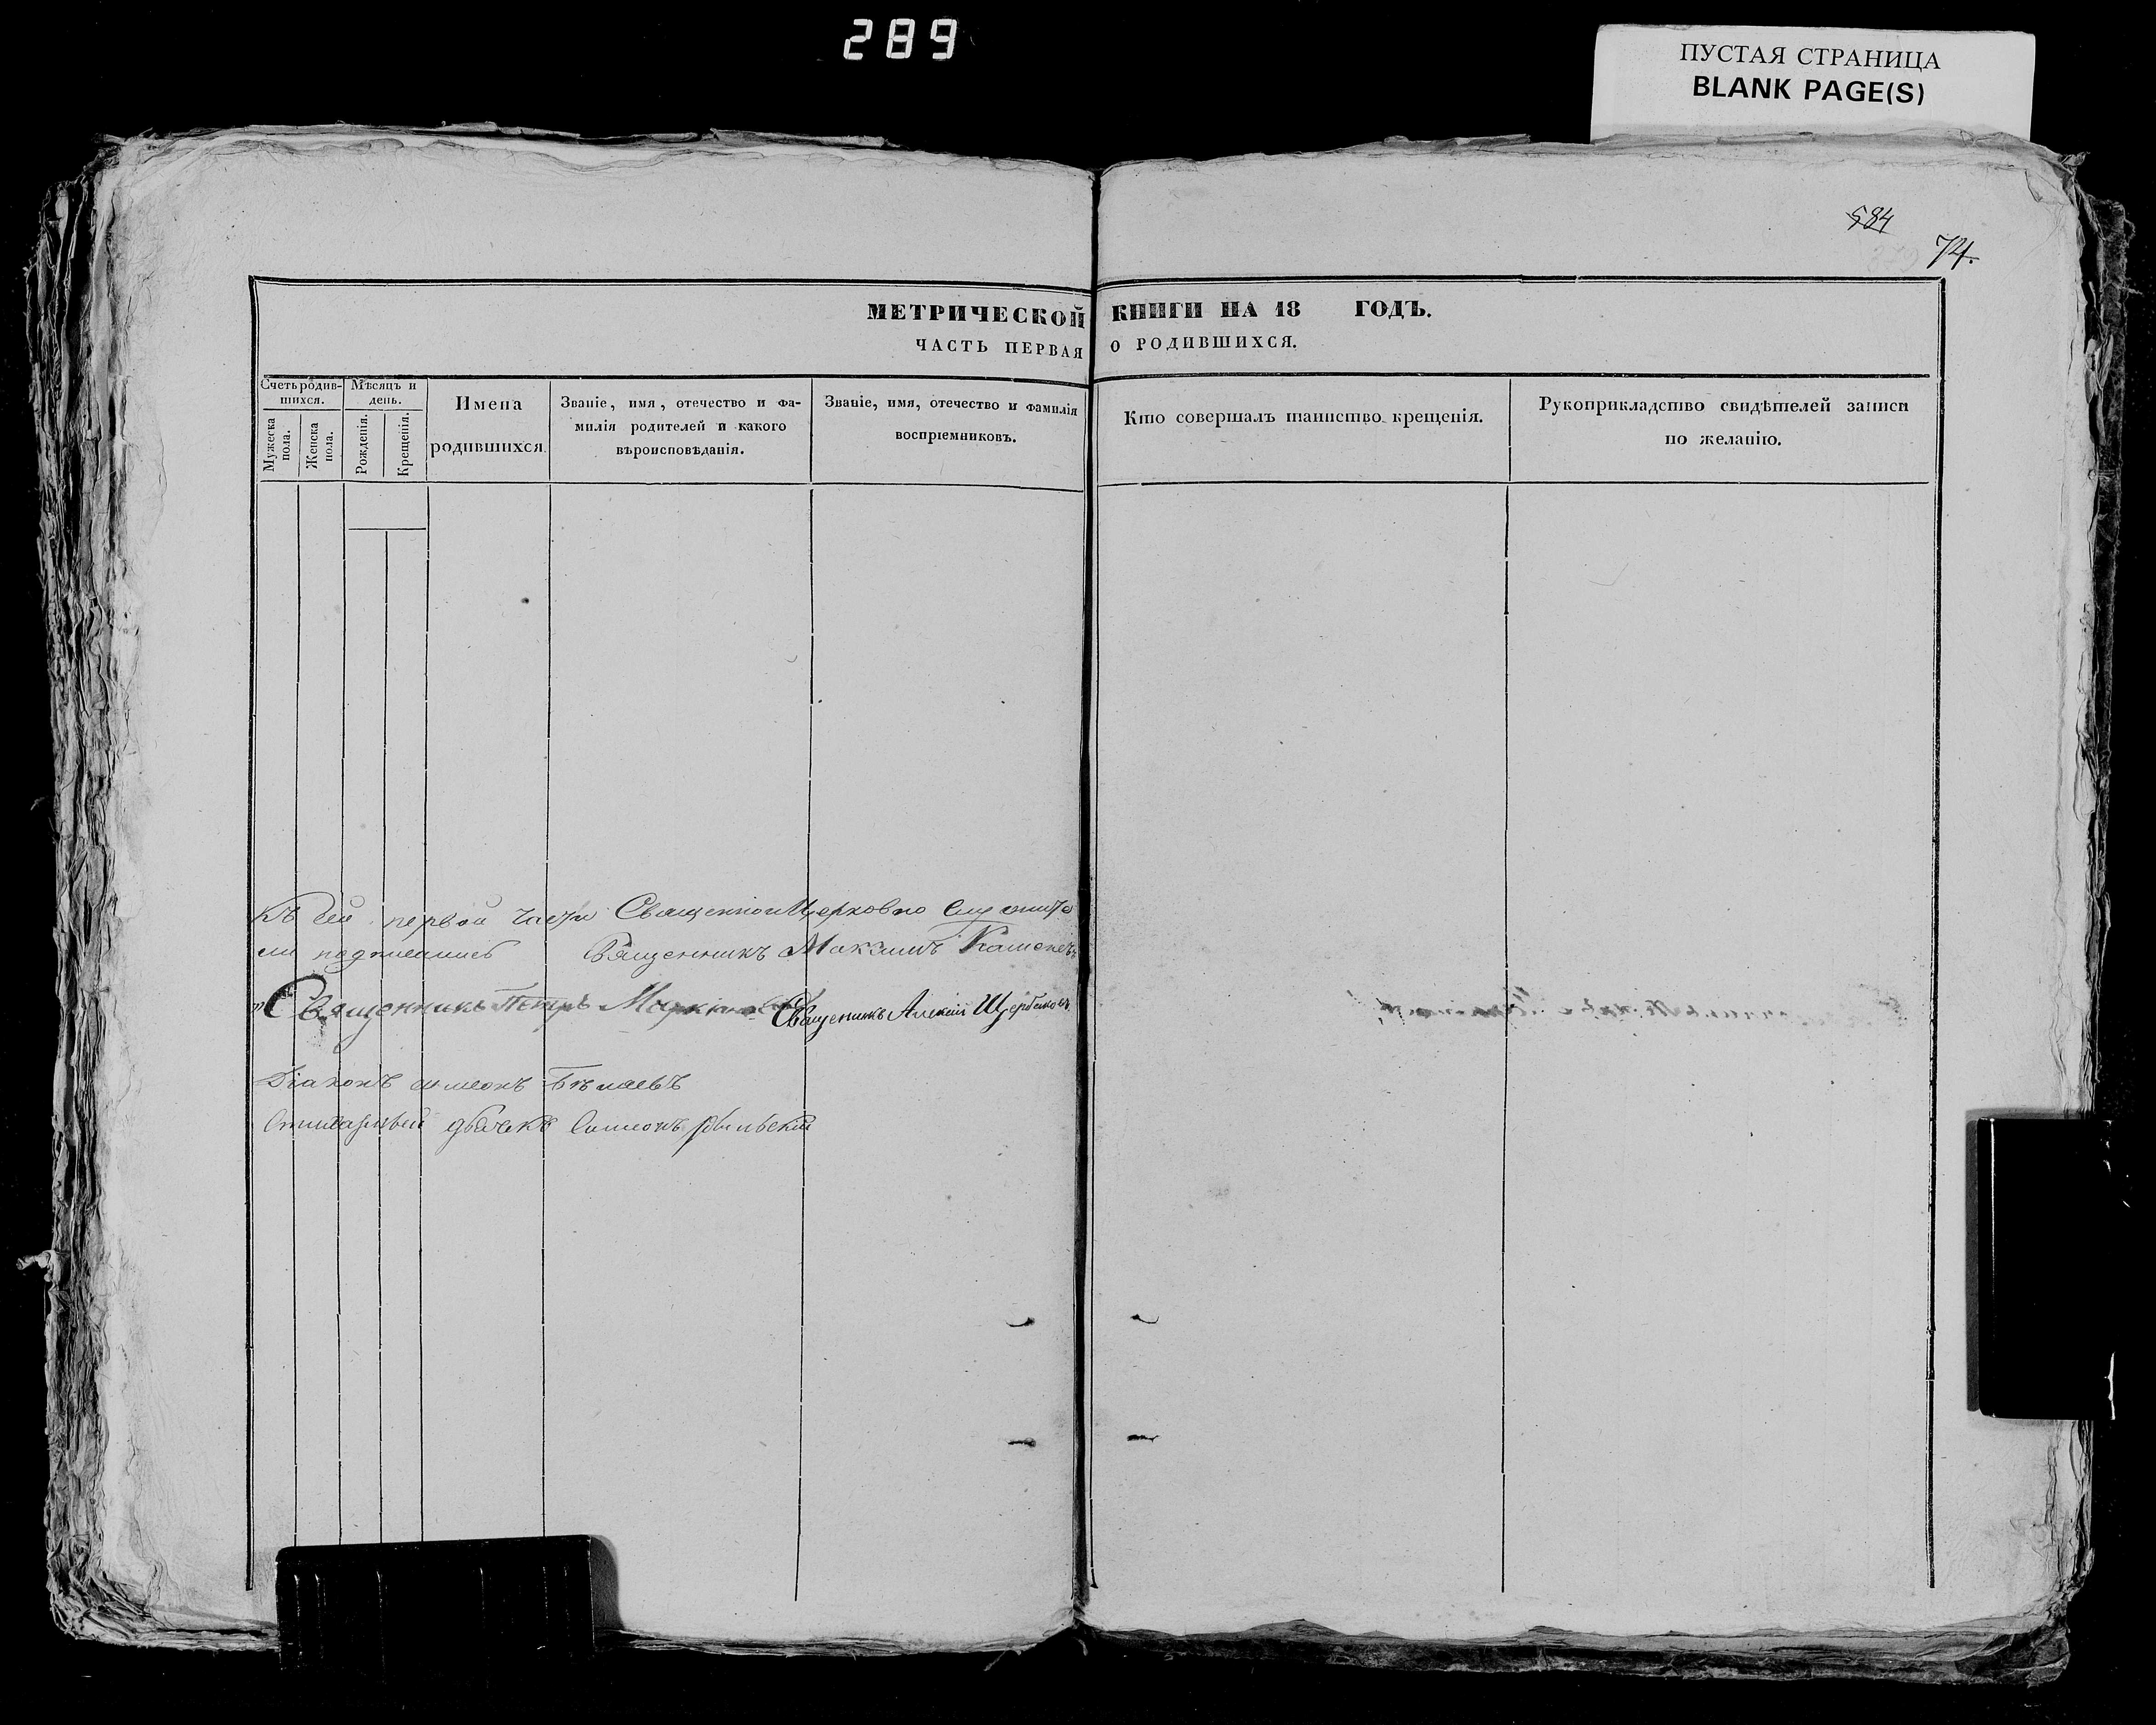 289
ПУСТАЯ СТРАНИЦА
BLANK PAGE(S)
584
74.
МЕТРИЧЕСКОЙ КНИГИ НА 18 ГОДЪ.
ЧАСТЬ ПЕРВАЯ О РОДИВШИХСЯ.
Счетъ родив-
шихся.
Мужеска
пола.
Женска
пола.
Мѣсяцъ и
день.
Рожденія.
Крещенія.
Имена
родившихся.
Званіе, имя, отечество и фа-
милія родителей и какого
вѣроисповѣданія.
Званіе, имя, отечество и фамилія
воспріемниковъ.
Кто совершалъ таинство крещенія.
Рукоприкладство свидѣтелей записи
по желанію.
Къ сей первой части Священно и Церковно Служите
ли подписались Священникъ Максимъ
Священникъ Петръ Священникъ Алексій Щербаковъ
Діаконъ Симеонъ Бѣляевъ
дьячекъ Симеонъ